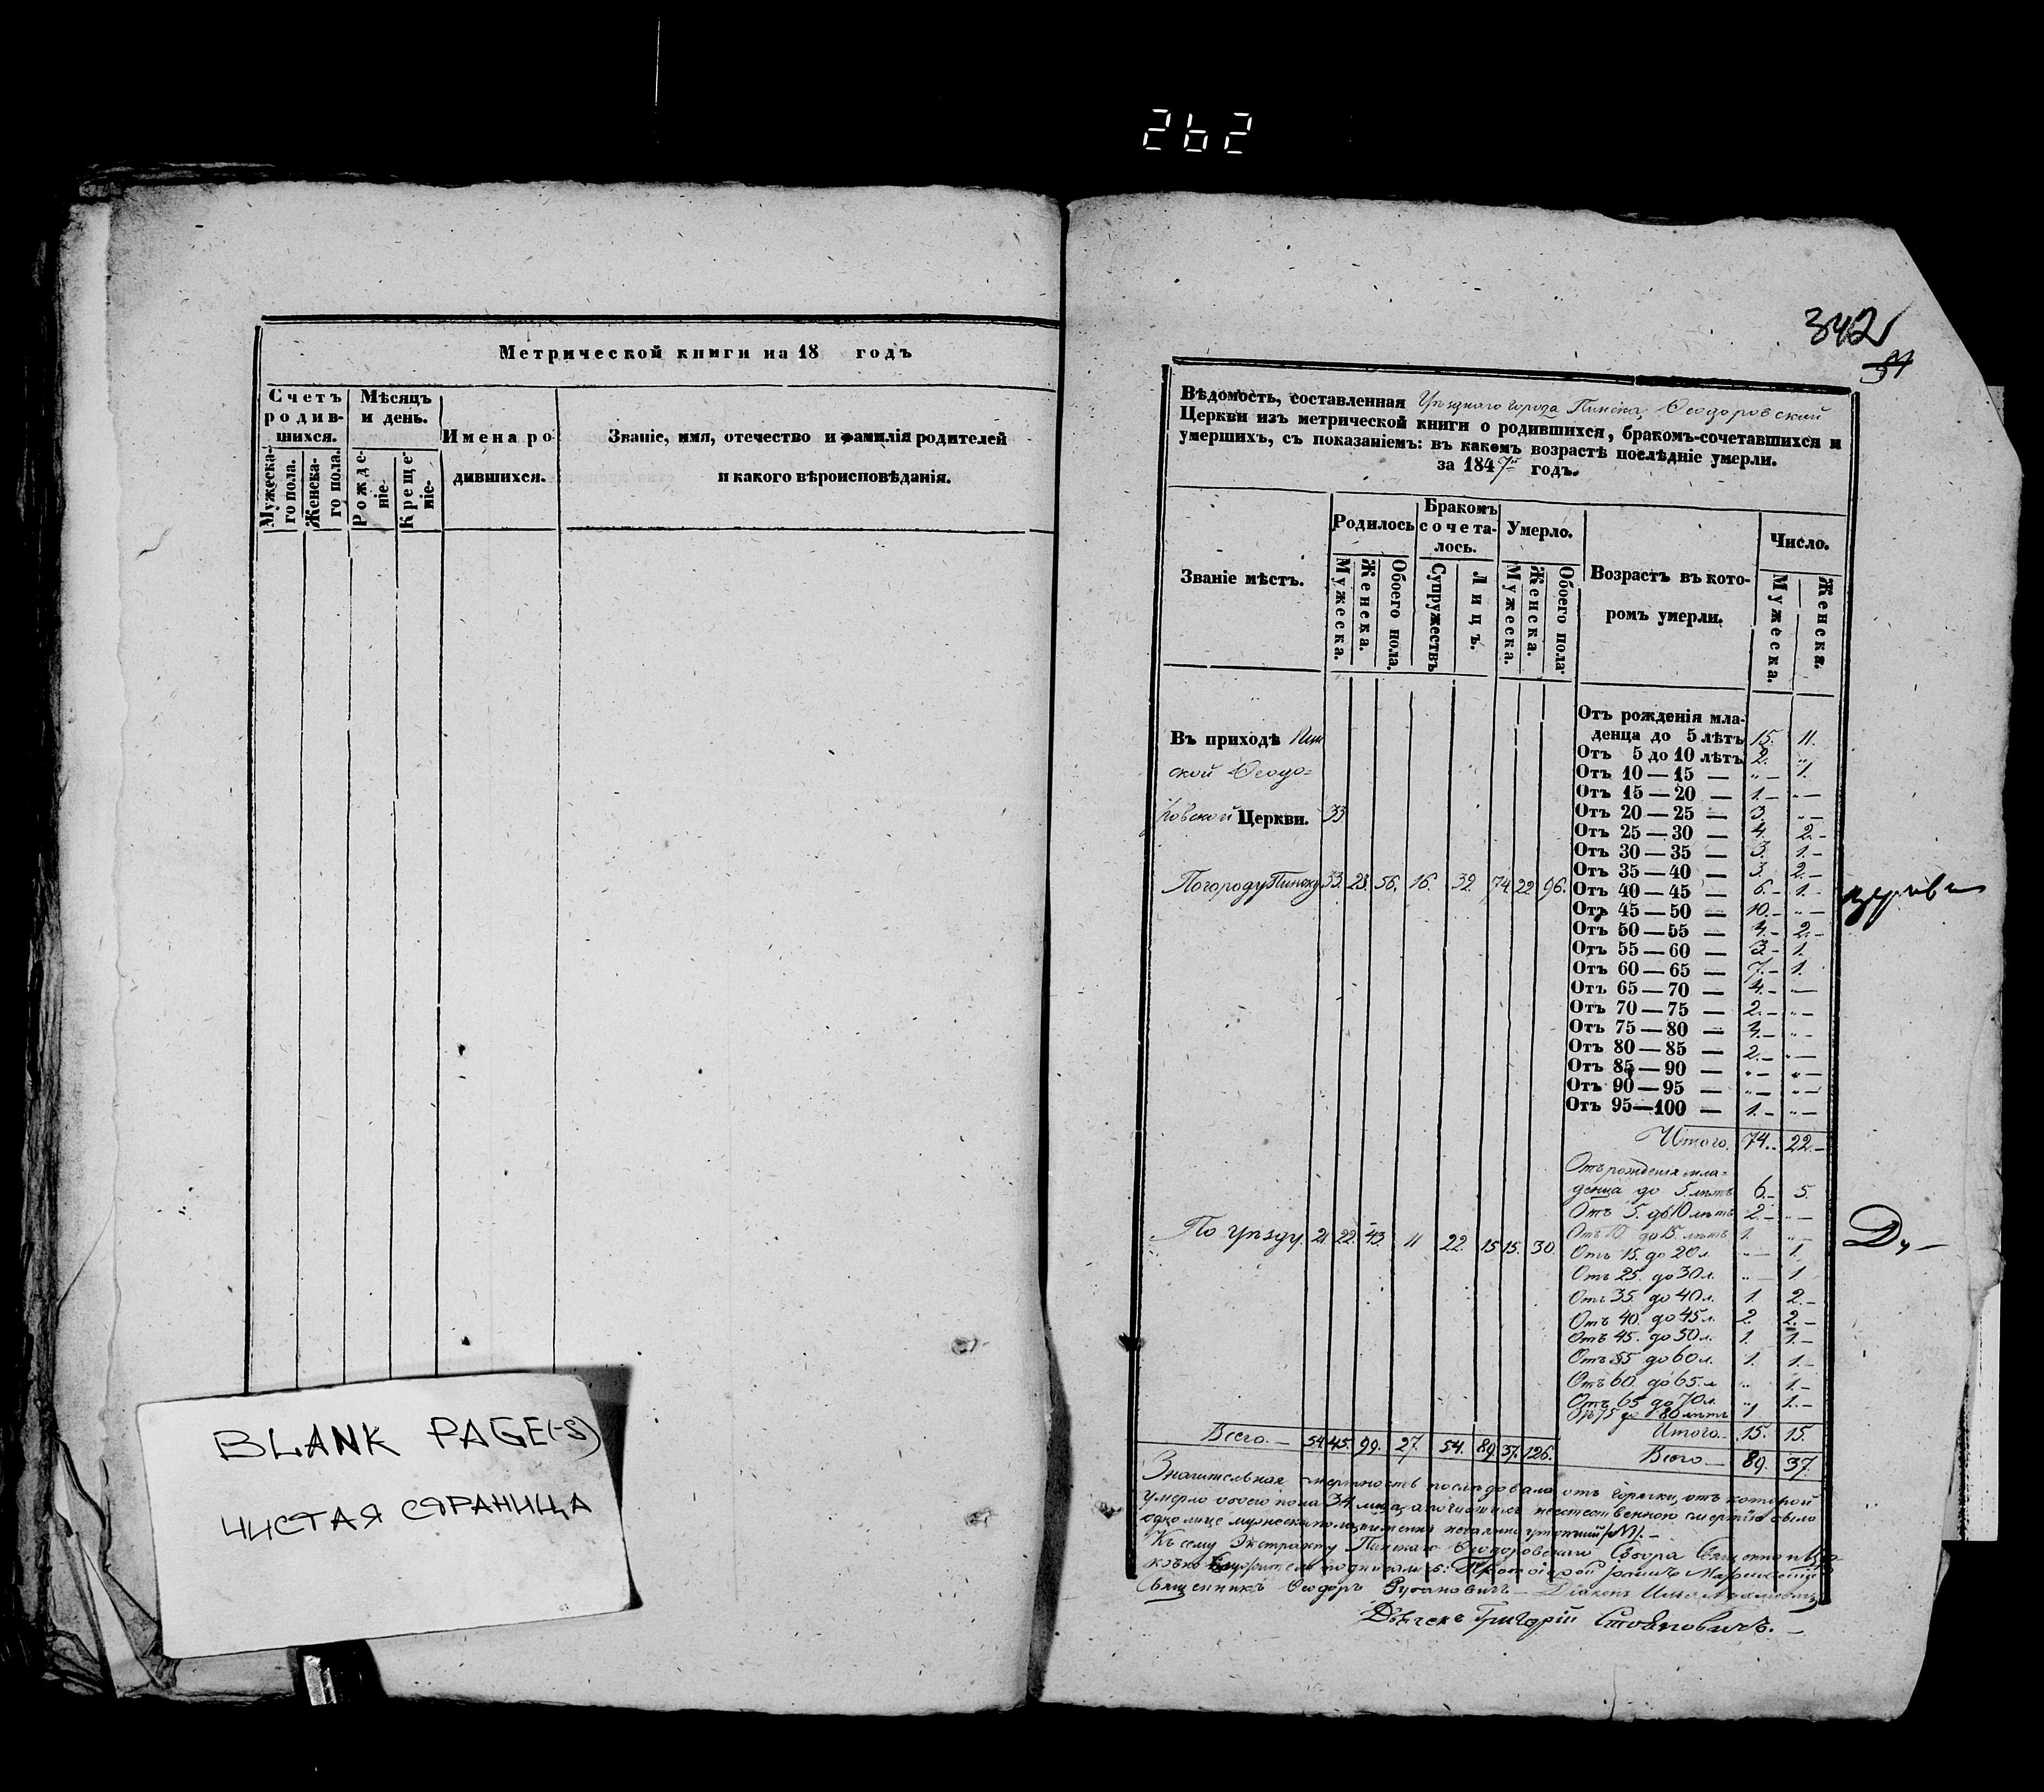 262
Метрической книги на 18 годъ
Счетъ родившихся.
Мѣсяцъ и день.
Имена родившихся.
Званіе, имя, отечество и фамилія родителей
и какого вѣроисповѣданія.
Мужескаго пола.
Женскаго пола.
Рожденіе.
Крещеніе.
BLANK PAGE(-S)
ЧИСТАЯ СТРАНИЦА
342
Вѣдомость, составленная Уѣзднаго города Пинска, Ѳеодоровской
Церкви изъ метрической книги о родившихся, бракомъ-сочетавшихся и
умершихъ, съ показаніемъ: въ какомъ возрастѣ послѣдніе умерли.
за 1847й годъ.
Званіе мѣстъ.
Родилось
Бракомъ сочеталось.
Умерло.
Возрастъ въ которомъ умерли.
Число.
Мужеска. Женска. Обоего пола.
Супружествъ Лицъ.
Мужеска. Женска. Обоего пола.
Мужеска. Женска.
Отъ рожденія мла-
Въ приходѣ Пин денца до 5 лѣтъ 15. 11.
Отъ 5 до 10 лѣтъ 2. „
ской Ѳеодо= Отъ 10 — 15 — „ — 1.
Отъ 15 — 20 — 1. — „ —
ровской Церкви. 33 Отъ 20 — 25 — 3. „ —
Отъ 25 — 30 — 4. 2. —
Отъ 30 — 35 — 3. 1. —
Отъ 35 — 40 — 3. 2. —
По городу Пинску 33. 23. 56. 16. 32. 74. 22. 96. Отъ 40 — 45 — 6 — 1.
Отъ 45 — 50 — 10. — „ —
Отъ 50 — 55 — 4. — 2. —
Отъ 55 — 60 — 3 — 1.
Отъ 60 — 65 — 7. — 1.
Отъ 65 — 70 — 4. — „ —
Отъ 70 — 75 — 2. — „ —
Отъ 75 — 80 — 4. — „ —
Отъ 80 — 85 — 2. — „ —
Отъ 85 — 90 — „ — „ —
Отъ 90 — 95 — „ — „ —
Отъ 95 — 100 — 1. — „ —
Итого. 74. 22. —
Отъ рожденія мла=
денца до 5. лѣтъ 6. — 5.
Отъ 5. до 10 лѣтъ 2. — „ —
По уѣзду. 21. 22. 43. 11 22. 15 15. 30. Отъ 10. до 15. лѣтъ 1. „ —
Отъ 15. до 20 л. „ — 1.
Отъ 25. до 30 л. „ — 1
Отъ 35. до 40 л. 1. 2. —
Отъ 40. до 45 л. 2. 2. —
Отъ 45. до 50 л. 1. 1. —
Отъ 55 до 60 л. 1. 1. —
Отъ 60. до 65. л „ 1. —
Отъ 65 до 70 л. „ 1. —
Отъ 75 до 80 лѣтъ 1
Итого. — 15. 15.
Всего. — 54 45. 99. 27. 54. 89. 37. 126. Всего — 89. 37.
Значительная смертность послѣдовала отъ горячки, отъ которой
умерло обоего пола 34 лица, а неестественною смертію было
одно лице мужеска пола
Къ сему Экстракту Пинскаго Ѳеодоровскаго Собора
Священникъ Ѳеодоръ
Дьячекъ Григорій Стояновичъ. —